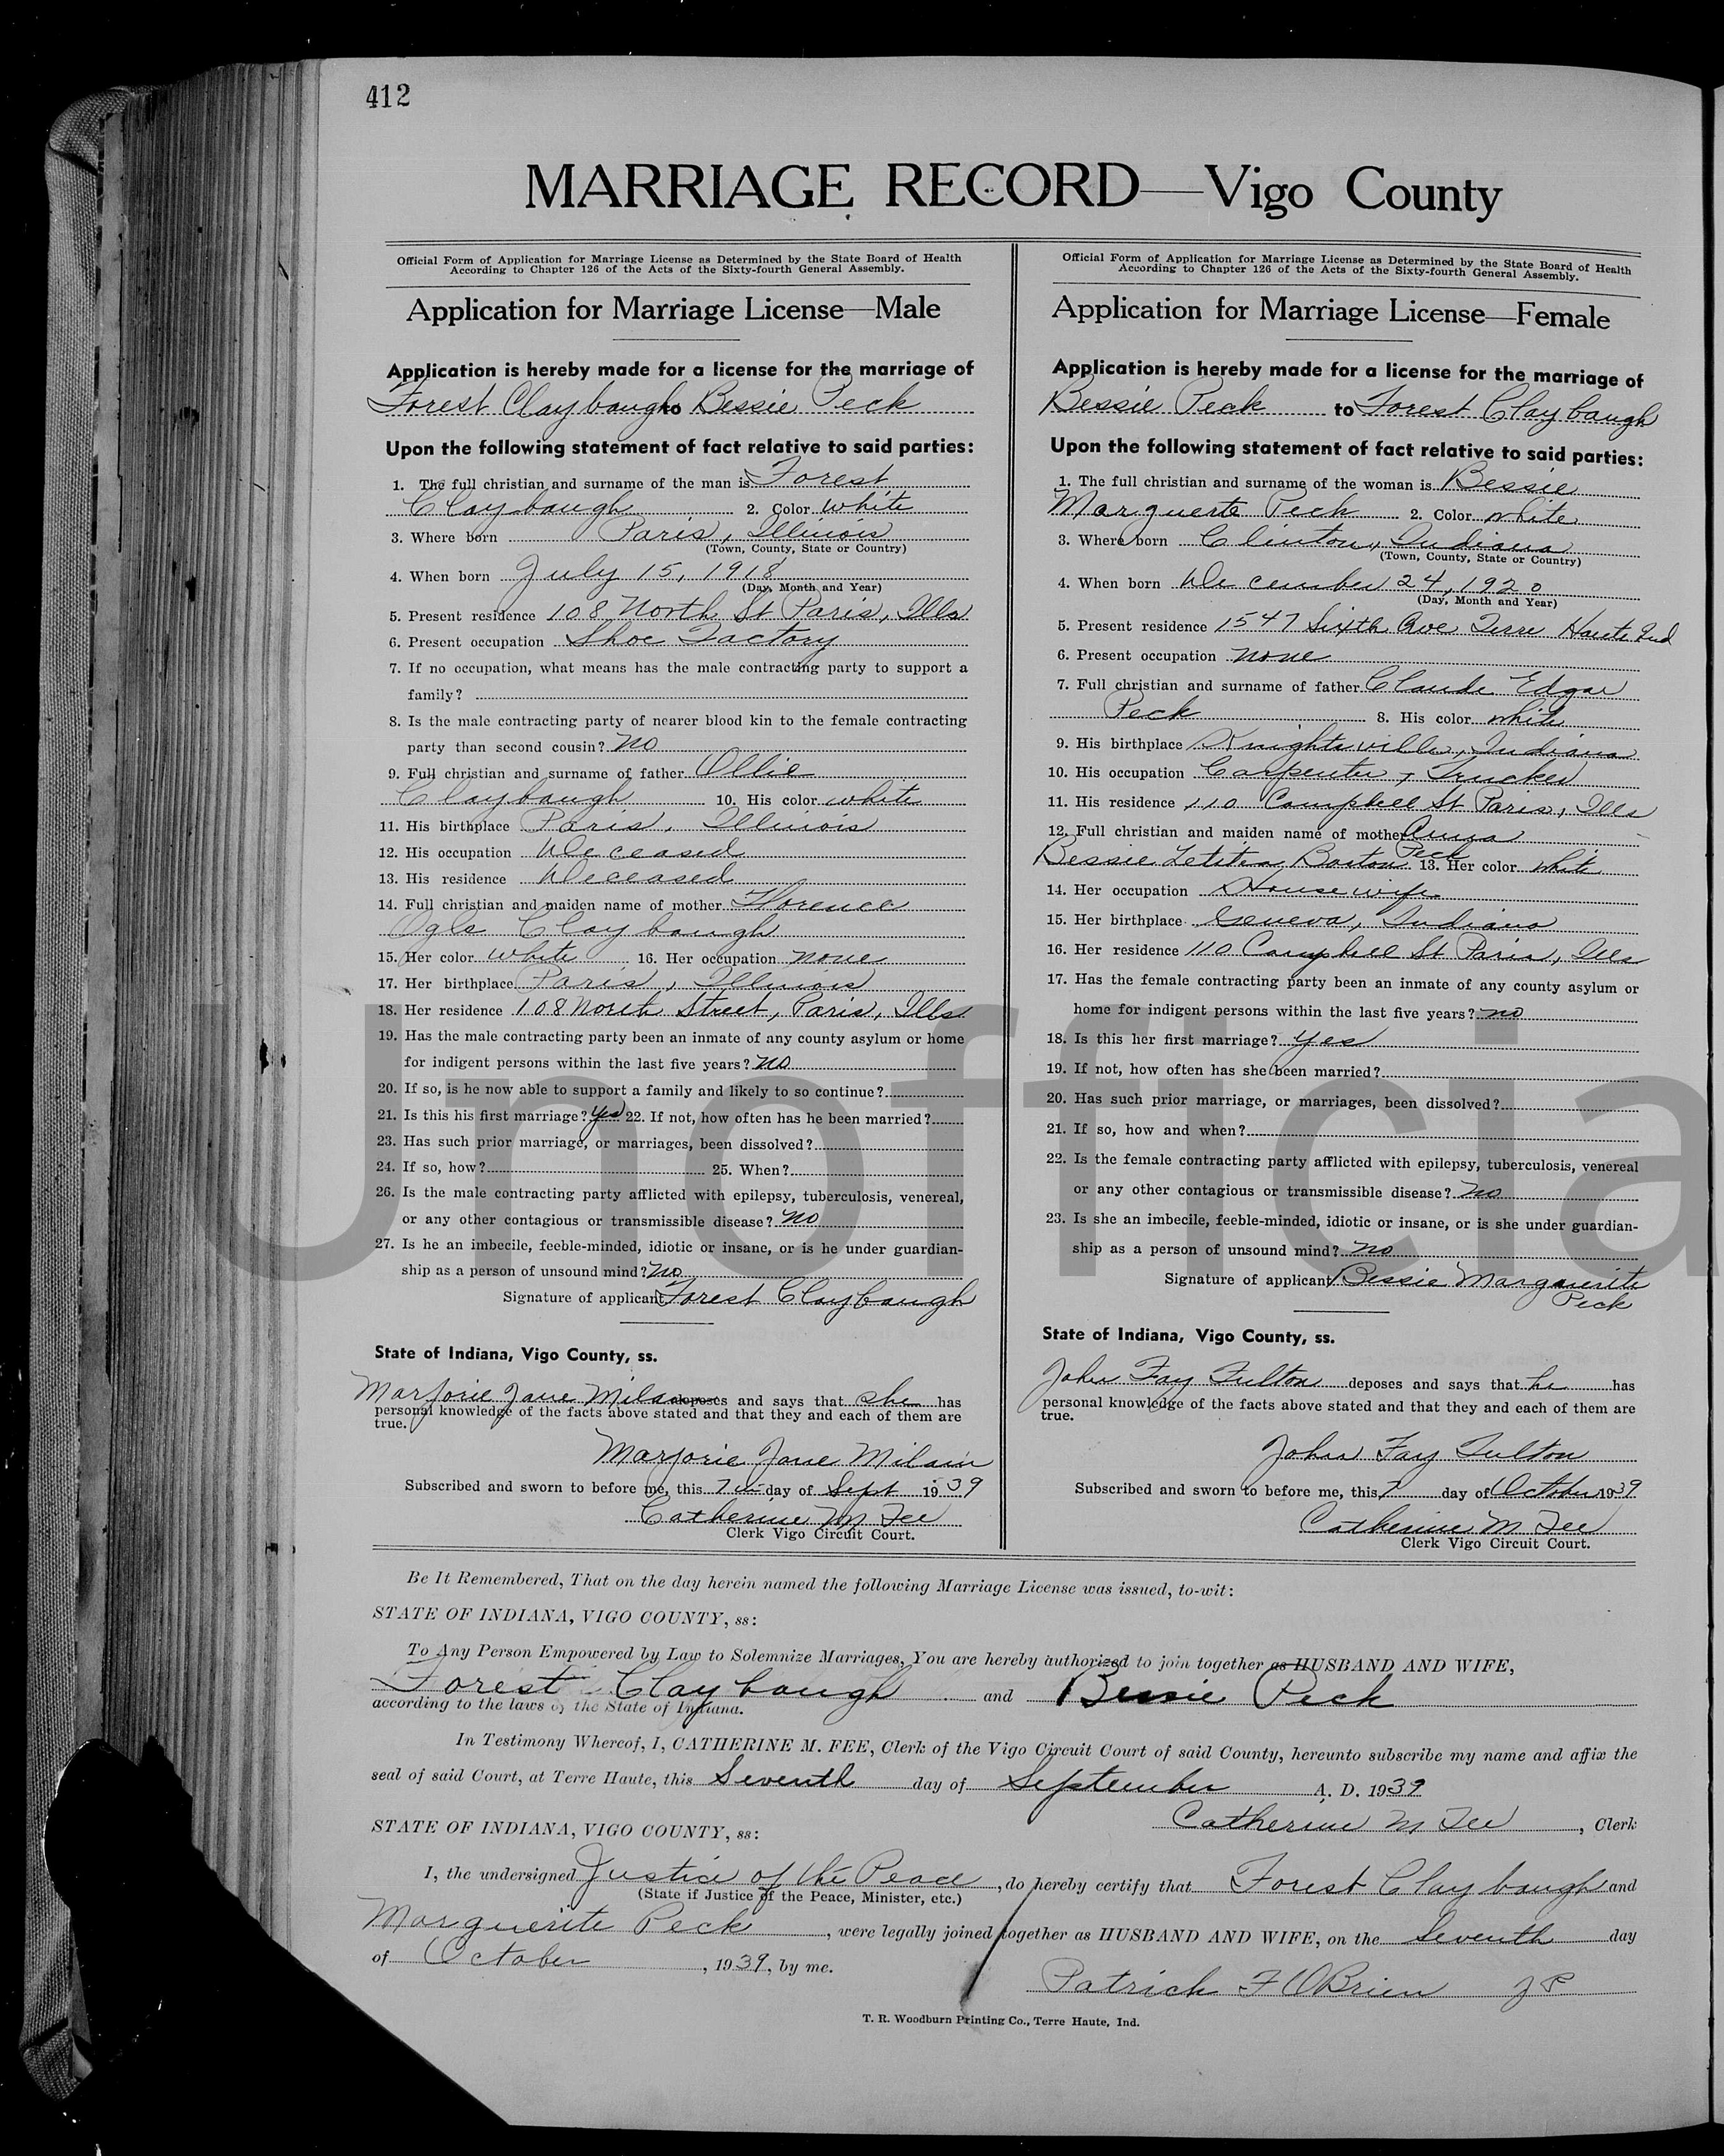 412
MARRIAGE RECORD—Vigo County
Official Form of Application for Marriage License as Determined by the State Board of Health
According to Chapter 126 of the Acts of the Sixty-fourth General Assembly.
Application for Marriage License—Male
Application is hereby made for a license for the marriage of
Forest Claybaugh to Bessie Peck
Upon the following statement of fact relative to said parties:
1. The full christian and surname of the man is Forest
Claybaugh 2. Color white
3. Where born Paris, Illinois
(Town, County, State or Country)
4. When born July 15, 1918
(Day, Month and Year)
5. Present residence 108 North St Paris, Ills
6. Present occupation Shoe Factory
7. If no occupation, what means has the male contracting party to support a
family?
8. Is the male contracting party of nearer blood kin to the female contracting
party than second cousin? No
9. Full christian and surname of father Ollie
Claybaugh 10. His color white
11. His birthplace Paris, Illinois
12. His occupation Deceased
13. His residence Deceased
14. Full christian and maiden name of mother Florence
Ogle Claybaugh
15. Her color white 16. Her occupation none
17. Her birthplace Paris, Illinois
18. Her residence 108 North Street, Paris, Ills
19. Has the male contracting party been an inmate of any county asylum or home
for indigent persons within the last five years? No
20. If so, is he now able to support a family and likely to so continue?
21. Is this his first marriage? Yes 22. If not, how often has he been married?
23. Has such prior marriage, or marriages, been dissolved?
24. If so, how? 25. When?
26. Is the male contracting party afflicted with epilepsy, tuberculosis, venereal,
or any other contagious or transmissible disease? No
27. Is he an imbecile, feeble-minded, idiotic or insane, or is he under guardian-
ship as a person of unsound mind? No
Signature of applicant Forest Claybaugh
State of Indiana, Vigo County, ss.
Marjorie Jane Milam deposes and says that she has
personal knowledge of the facts above stated and that they and each of them are
true.
Marjorie Jane Milam
Subscribed and sworn to before me, this 7th day of Sept 1939
Catherine M Fee
Clerk Vigo Circuit Court.
Official Form of Application for Marriage License as Determined by the State Board of Health
According to Chapter 126 of the Acts of the Sixty-fourth General Assembly.
Application for Marriage License—Female
Application is hereby made for a license for the marriage of
Bessie Peck to Forest Claybaugh
Upon the following statement of fact relative to said parties:
1. The full christian and surname of the woman is Bessie
Marguerte Peck 2. Color white
3. Where born Clinton, Indiana
(Town, County, State or Country)
4. When born December 24, 1920
(Day, Month and Year)
5. Present residence 1547 Sixth Ave Terre Haute Ind
6. Present occupation none
7. Full christian and surname of father Claude Edgar
Peck 8. His color white
9. His birthplace Knightsville, Indiana
10. His occupation Carpenter + Trucker
11. His residence 110 Campbell St Paris, Ills
12. Full christian and maiden name of mother Anna
Bessie Letitia Boston Peck 13. Her color white
14. Her occupation Housewife
15. Her birthplace Geneva, Indiana
16. Her residence 110 Campbell St Paris, Ills
17. Has the female contracting party been an inmate of any county asylum or
home for indigent persons within the last five years? no
18. Is this her first marriage? yes
19. If not, how often has she been married?
20. Has such prior marriage, or marriages, been dissolved?
21. If so, how and when?
22. Is the female contracting party afflicted with epilepsy, tuberculosis, venereal
or any other contagious or transmissible disease? No
23. Is she an imbecile, feeble-minded, idiotic or insane, or is she under guardian-
ship as a person of unsound mind? no
Signature of applicant Bessie Marguerite
Peck
State of Indiana, Vigo County, ss.
John Fay Fulton deposes and says that he has
personal knowledge of the facts above stated and that they and each of them are
true.
John Fay Fulton
Subscribed and sworn to before me, this 7 day of October 1939
Catherine M Fee
Clerk Vigo Circuit Court.
Be It Remembered, That on the day herein named the following Marriage License was issued, to-wit:
STATE OF INDIANA, VIGO COUNTY, ss:
To Any Person Empowered by Law to Solemnize Marriages, You are hereby authorized to join together as HUSBAND AND WIFE,
Forest Claybaugh and Bessie Peck
according to the laws of the State of Indiana.
In Testimony Whereof, I, CATHERINE M. FEE, Clerk of the Vigo Circuit Court of said County, hereunto subscribe my name and affix the
seal of said Court, at Terre Haute, this Seventh day of September A. D. 1939
Catherine M Fee, Clerk
STATE OF INDIANA, VIGO COUNTY, ss:
I, the undersigned Justice of the Peace, do hereby certify that Forest Claybaugh and
(State if Justice of the Peace, Minister, etc.)
Marguerite Peck, were legally joined together as HUSBAND AND WIFE, on the Seventh day
of October, 1939, by me.
Patrick F OBrien J P
T. R. Woodburn Printing Co., Terre Haute, Ind.
Unofficia